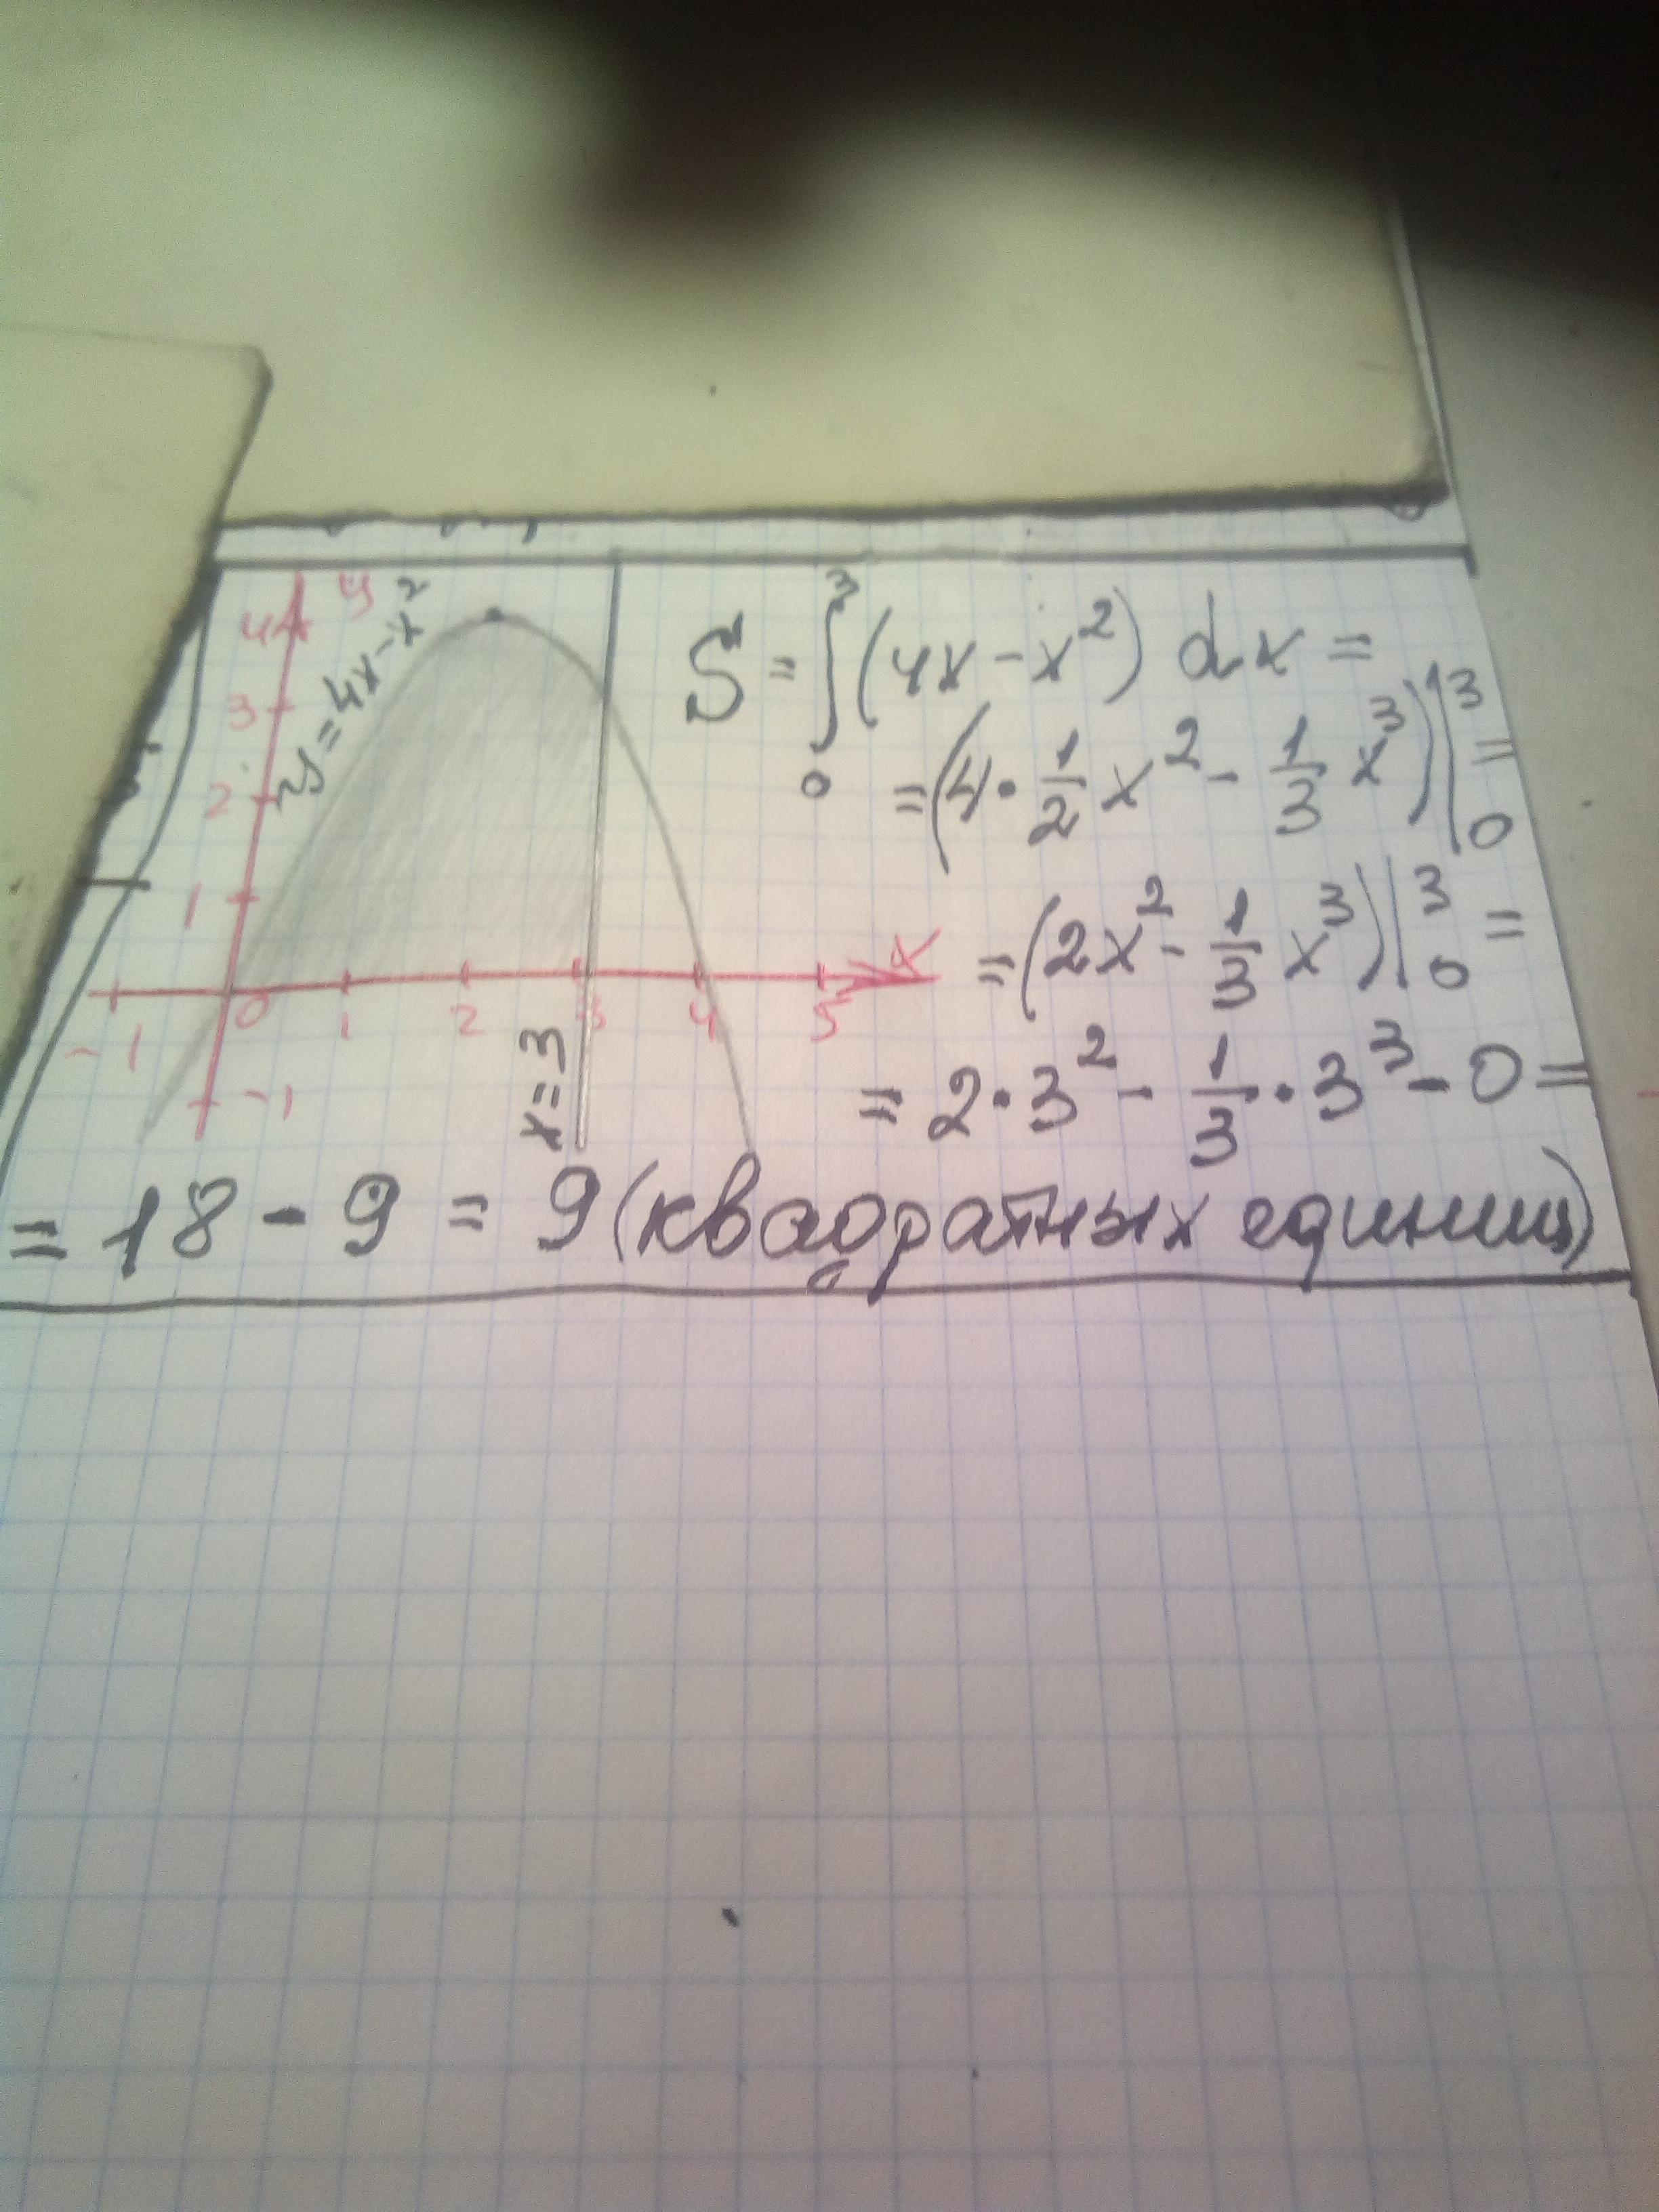 y
4
3
2
1
0
-1
-1
1
2
3
4
5
x
y = 4x - x²
x = 3
S = ∫₀³ (4x - x²) dx =
= (4 · 1/2 x² - 1/3 x³) |₀³ =
= (2x² - 1/3 x³) |₀³ =
= 2 · 3² - 1/3 · 3³ - 0 =
= 18 - 9 = 9 (квадратных единиц)